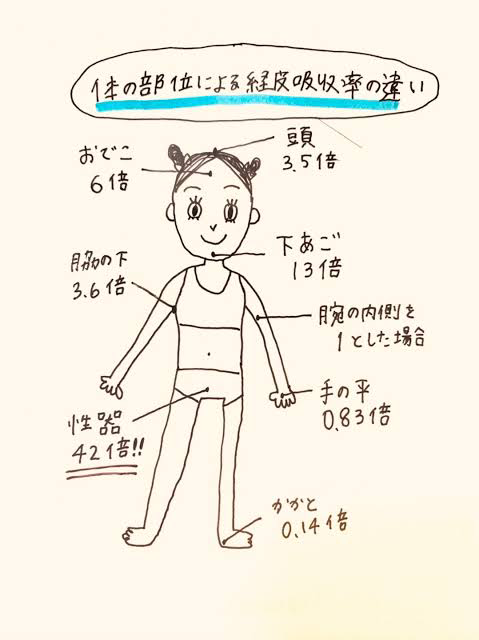 体の部位による経皮吸収率の違い
頭
3.5倍
おでこ
6倍
下あご
13倍
脇の下
3.6倍
腕の内側を
1とした場合
手の平
0.83倍
性器
42倍!!
かかと
0.14倍